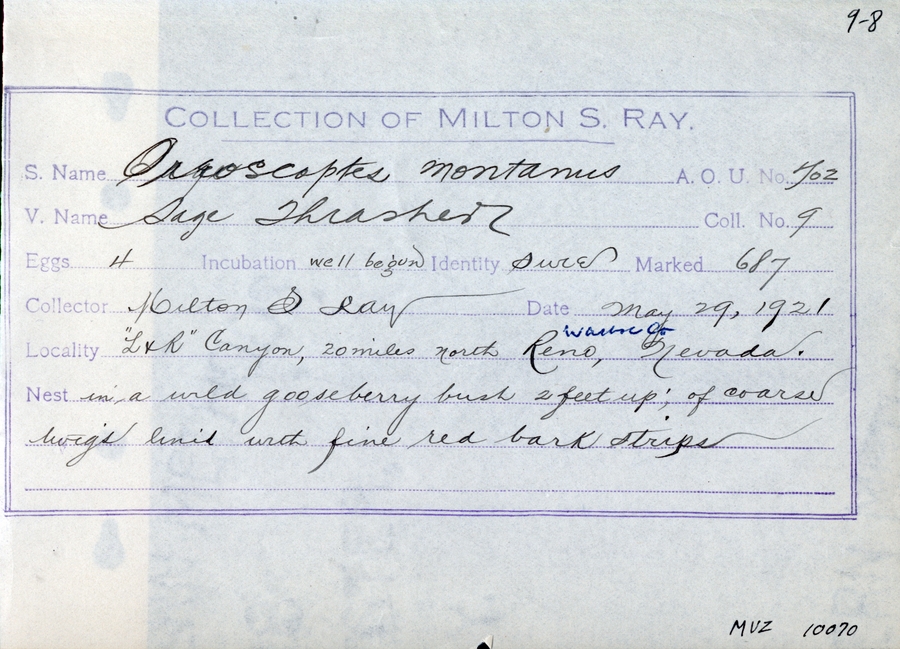 9-8
COLLECTION OF MILTON S. RAY.
S. Name Oroscoptes montanus A. O. U. No. 702
V. Name Sage Thrasher Coll. No. 9
Eggs 4 Incubation well begun Identity sure Marked 687
Collector Milton S Ray Date May 29, 1921
Washoe Co
Locality "L & R" Canyon, 20 miles north Reno, Nevada.
Nest in a wild gooseberry bush 2 feet up; of coarse
twigs lin'd with fine red bark strips
MVZ 10070